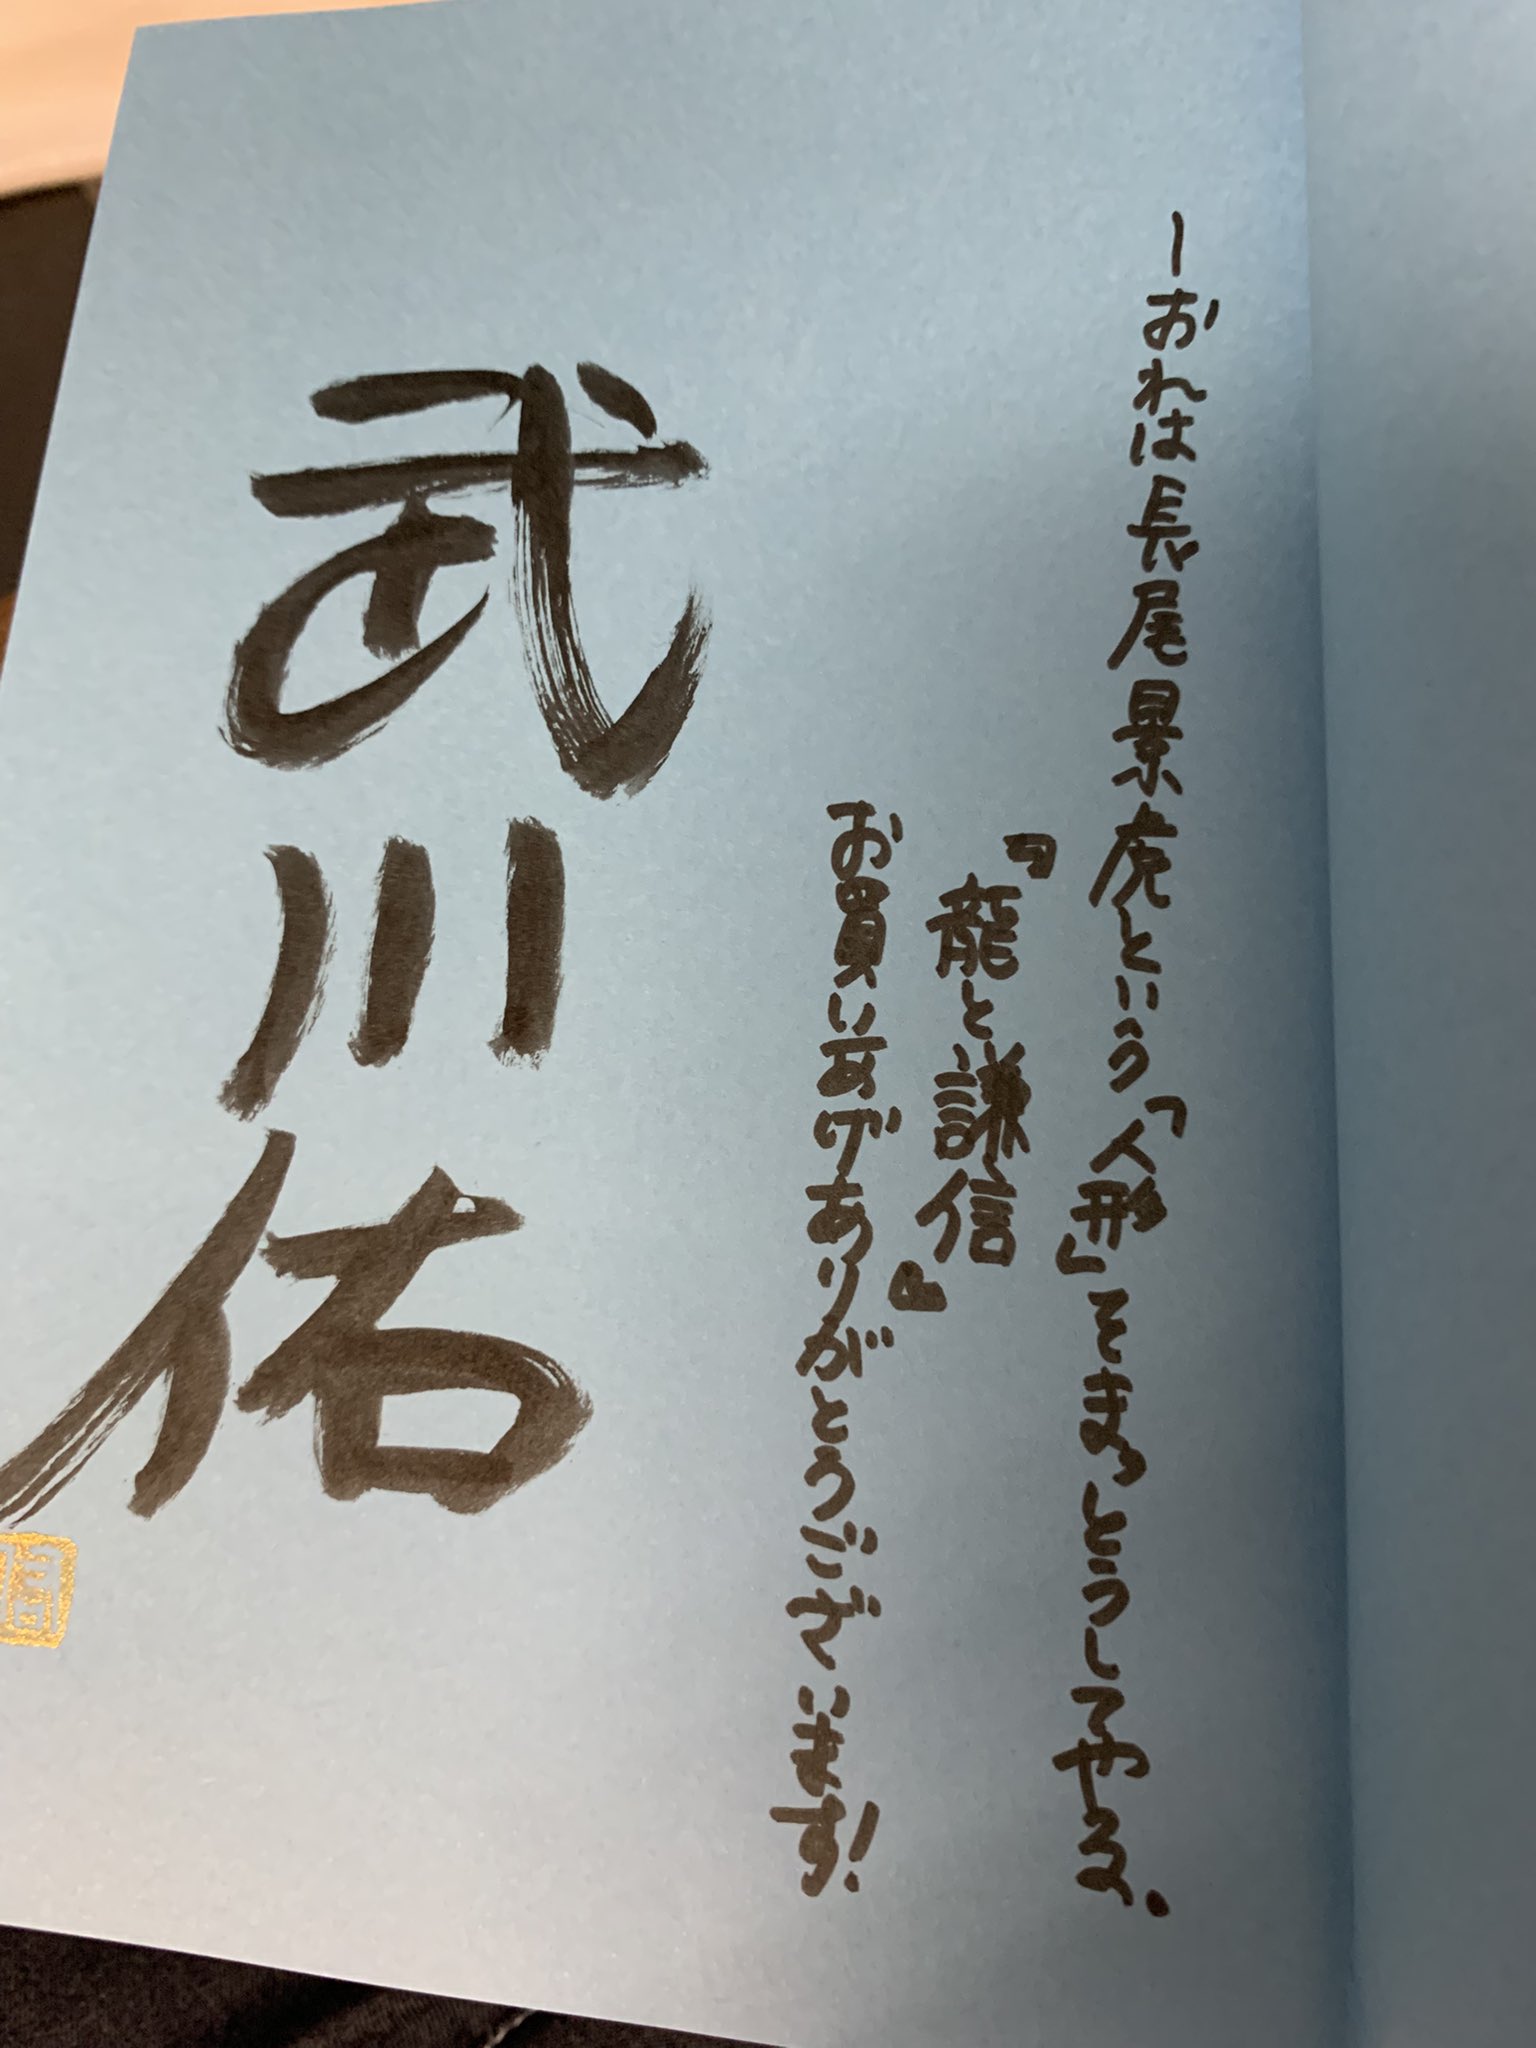 ―おれは長尾景虎という「人形」をまっとうしてやる.
『龍と謙信』
お買いあげありがとうございます!
武川佑